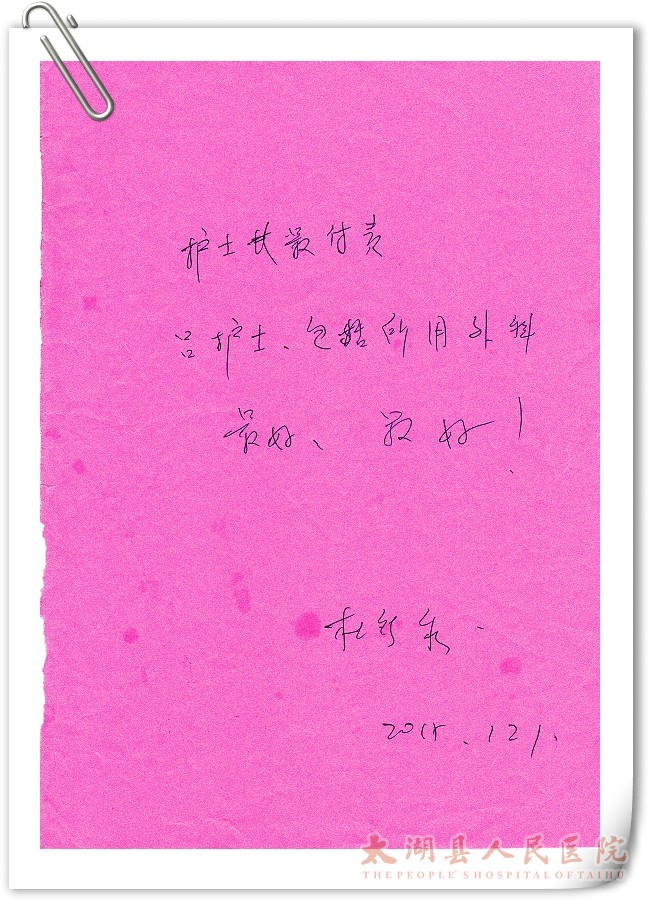 护士长最付责
吕护士、包括所用外科
最好、最好！
杜
201 .12 1.
太湖县人民医院
THE PEOPLE'S HOSPITAL OF TAIHU